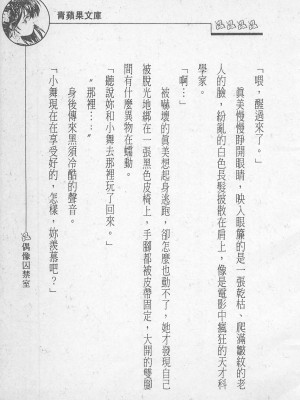 青蘋果文庫
「喂，醒過來了。」
眞美慢慢睜開眼睛，映入眼簾的是一張乾枯、爬滿皺紋的老
人的臉，紛亂的白色長髮披散在肩上，像是電影中瘋狂的天才科
學家。
「啊…」
被嚇壞的眞美想起身逃跑，卻怎麼也動不了，她才發現自己
被脫光地綁在一張黑色皮椅上，手腳都被皮帶固定，大開的雙腳
間有什麼異物在蠕動。
「聽說妳和小舞去那裡玩了回來。」
〝那裡…〞
身後傳來黑須冷酷的聲音。
「小舞現在在享受好的，怎樣，妳羨慕吧？」
偶像囚禁室